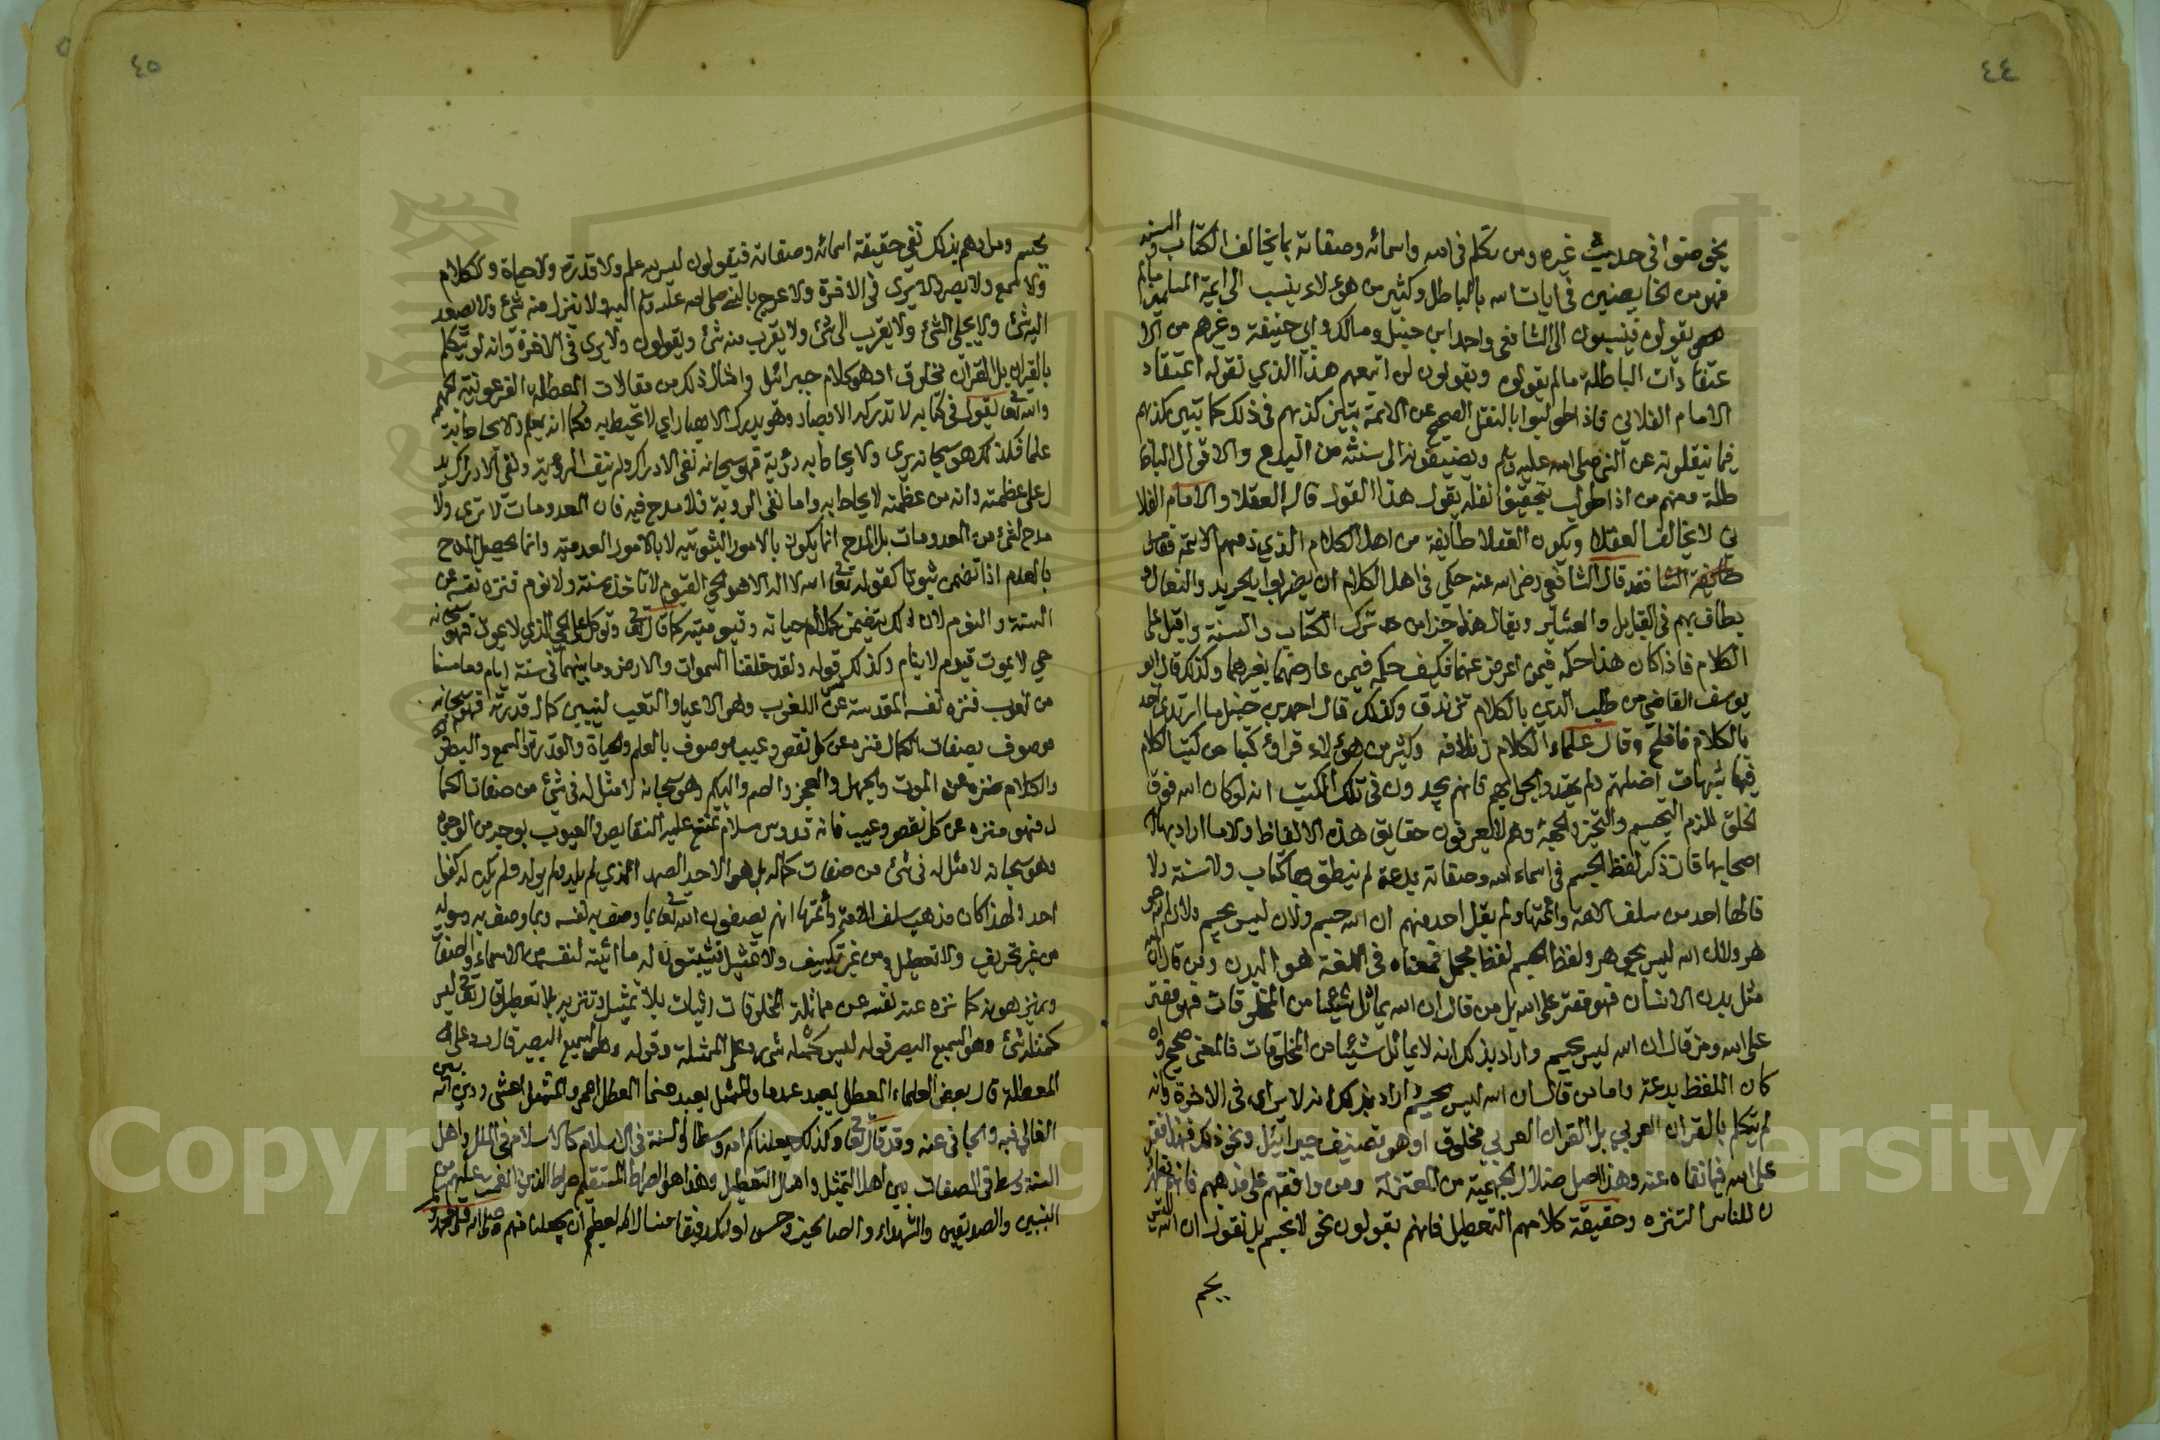 ٤٤
يخوضوا في حديث غيره ومن تكلم في الله واسمائه وصفاته بما يخالف الكتاب والسنة
فهو من الخايضين في ايات الله بالباطل وكثير من هؤلاء ينسب الى ايمة المسلمين مالم
يقولوه فينسبون الى الشافعي واحد ابن حنبل ومالك وابي حنيفة وغيرهم من الا
عتقادات الباطلة مالم يقولوه ويقولون لمن اتبعهم هذا الذي نقوله اعتقاد
الامام الفلاني فاذا طولبوا بالنقل الصحيح عن الائمة يتبين كذبهم في ذلك كما تبين كذبهم
فيما ينقلونه عن النبي صلى الله عليه وسلم ويضيفونه الى سنته من البدع والاقوال البا
طلة ومنهم من اذا طولب بتحقيق نقله يقول هذا القول قاله العقلا والامام الفلا
ني لا يخالف العقلا ويكون العقلا طائفة من اهل الكلام الذي ذمهم الائمة فقال
الشا فقد قال الشافعي رضي الله عنه حكمي في اهل الكلام ان يضربوا بالجريد والنعال و
يطاف بهم في القبايل والعشاير ويقال هذا جزا من ترك الكتاب والسنة واقبل على
الكلام فاذا كان هذا حكمه فيمن اعرض عنهما فكيف حكمه فيمن عارضهما بغيرهما وكذلك قال ابو
يوسف القاضي من طلب الدين بالكلام تزندق وكذلك قال احمد بن حنبل ما ارتدى احد
بالكلام فافلح وقال علماء الكلام زنادقة وكثير من هؤلاء قرأوا كتبا من كتب الكلام
فيها شبهات اضلتهم ولم يهتدوا لجوابهم فانهم يجدون في تلك الكتب انه لو كان الله فوق
الخلق للزم التجسيم والتحيز والجهة وهم لا يعرفون حقايق هذه الالفاظ ولا ما اراد بها
اصحابها فان ذكر لفظ الجسم في اسماء الله وصفاته بدعة لم ينطق بها كتاب ولا سنة ولا
قالها احد من سلف الامة وائمتها ولم يقل احد منهم ان الله جسم ولا ان ليس بجسم ولا ان الله جو
هر ولا ان الله ليس بجوهر ولفظ الجسم لفظ مجمل فمعناه في اللغة هو البدن ومن قال ان الله
مثل بدن الانسان فهو مفتر على الله بل من قال ان الله يماثل شيئا من المخلوقات فهو مفتر
على الله ومن قال ان الله ليس بجسم واراد بذلك انه لا يماثل شيئا من المخلوقات فالمعنى صحيح وان
كان اللفظ بدعة واما من قال ان الله ليس بجسم واراد بذلك انه لا يرى في الاخرة وانه
لم يتكلم بالقران العربي بل القران العربي مخلوق او هو تصنيف جبرائيل ونحو ذلك فهذا مفتر
على الله فيما نفاه عنه وهذا اصل ضلال الجهمية من المعتزلة ومن وافقهم على مذهبهم فانهم يظهرو
ن للناس التنزه وحقيقة كلامهم التعطيل فانهم يقولون نحن لا نجسم بل نقول ان الله ليس
بجسم
٤٥
بجسم ومرادهم بذلك نفي حقيقة اسمائه وصفاته فيقولون ليس له علم ولا قدرة ولا حياة ولا كلام
ولا سمع ولا بصر ولا يرى في الاخرة ولا عرج بالنبي صلى الله عليه وسلم اليه ولا ينزل منه شئ ولا يصعد
اليه شئ ولا يتجلى لشئ ولا يقرب الى شئ ولا يقرب منه شئ ويقولون ولا يرى في الاخرة وانه لم يتكلم
بالقران بل القران مخلوق او هو كلام جبرائيل وامثال ذلك من مقالات المعطلة الفرعونية الجهمية
والله تعالى يقول في كتابه لا تدركه الابصار وهو يدرك الابصار اي لا تحيط به فكما انه يعلم ولا يحاط به
علما فكذلك هو سبحانه يرى ولا يحاط به رؤية فهو سبحانه نفى الادراك ولم ينف الرؤية ونفي الادراك يد
ل على عظمته وانه من عظمته لا يحاط به واما نفي الروية فلا مدح فيه فان المعدومات لا ترى ولا
مدح لشئ من المعدومات بل المدح انما يكون بالامور الثبوتية لا بالامور العدمية وانما يحصل المدح
بالعدم اذا تضمن ثبوتا كقوله تعالى الله لا اله الا هو الحي القيوم لا تاخذه سنة ولا نوم فنزه نفسه عن
السنة والنوم لان ذلك يتضمن كمال حياته وقيوميته كما قال تعالى وتوكل على الحي الذي لا يموت فهو سبحانه
حي لا يموت قيوم لا ينام وكذلك قوله ولقد خلقنا السموات والارض وما بينهما في ستة ايام وما مسنا
من لغوب فنزه نفسه المقدسة عن مس اللغوب وهو الاعياء والتعب ليتبين كمال قدرته فهو سبحانه
موصوف بصفات الكمال منزه عن كل نقص وعيب موصوف بالعلم والحياة والقدرة والسمع والبصر
والكلام منزه عن الموت والجهل والعجز والصم والبكم وهو سبحانه لا مثل له في شئ من صفات الكما
ل فهو منزه عن كل نقص وعيب فانه قدوس سلام يمتنع عليه النقايص والعيوب بوجه من الوجوه
وهو سبحانه لا مثل له في شئ من صفات كماله بل هو الاحد الصمد الذي لم يلد ولم يولد ولم يكن له كفوا
احد ولهذا كان مذهب سلف الامة وائمتها انهم يصفون الله تعالى بما وصف به نفسه وبما وصفه به رسوله
من غير تحريف ولا تعطيل ومن غير تكييف ولا تمثيل فيثبتون له ما اثبته لنفسه من الاسماء والصفات
وينزهونه كما نزه عنه نفسه من مماثلة المخلوقات اثبات بلا تمثيل وتنزيه بلا تعطيل قال تعالى ليس
كمثله شئ وهو السميع البصير قوله ليس كمثله شئ رد على الممثلة وقوله وهو السميع البصير قال رد على
المعطلة قال بعض العلماء المعطل يعبد عدما والممثل يعبد صنما المعطل اعمى والممثل اعشى ودين الله بين
الغالي فيه والجافي عنه وقد قال تعالى وكذلك جعلناكم امة وسطا والسنة في الاسلام كالاسلام في الملل واهل
السنة وسط في الصفات بين اهل التمثيل واهل التعطيل وهذا هو الصراط المستقيم صراط الذين انعمت عليهم من
النبيين والصديقين والشهداء والصالحين وحسن اولئك رفيقا فنسال الله العظيم ان يجعلنا منهم